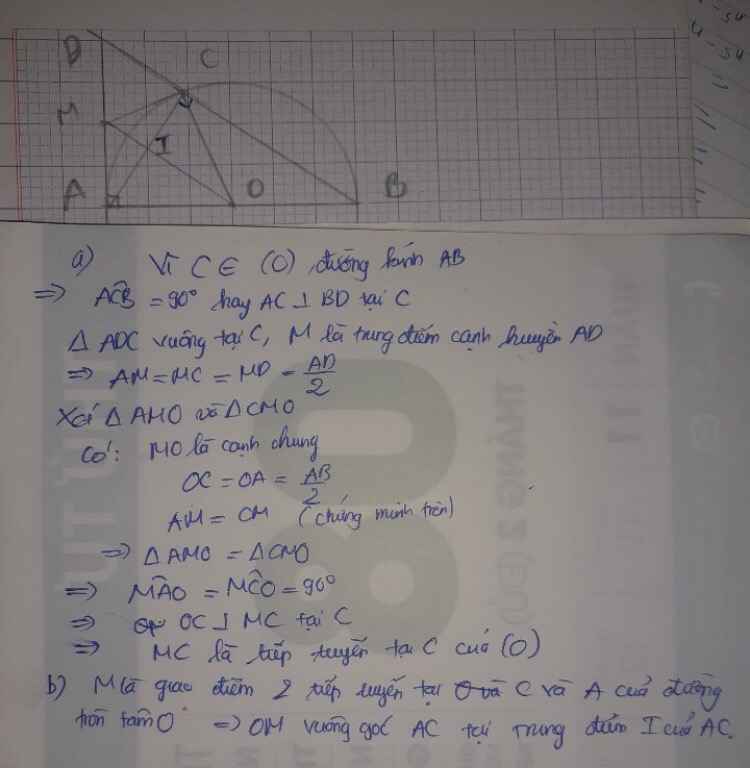 D
C
M
I
A
O
B
a) Vì C ∈ (O), đường kính AB
⇒ ACB̂ = 90° hay AC ⊥ BD tại C
Δ ADC vuông tại C, M là trung điểm cạnh huyền AD
⇒ AM = MC = MD = AD/2
Xét Δ AMO và Δ CMO
Có: MO là cạnh chung
OC = OA = AB/2
AM = CM (chứng minh trên)
⇒ Δ AMO = Δ CMO
⇒ MÂO = MĈO = 90°
⇒ OC ⊥ MC tại C
⇒ MC là tiếp tuyến tại C của (O)
b) M là giao điểm 2 tiếp tuyến tại C và A của đường
tròn tâm O ⇒ OM vuông góc AC tại trung điểm I của AC.
THÁNG 2 (ĐỦ)